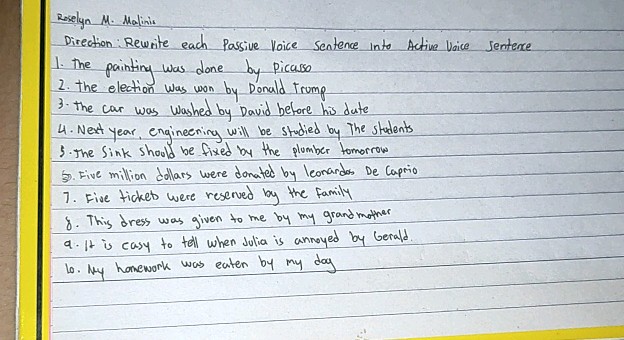 Roselyn M. Malinis
Direction : Rewrite each Passive Voice Sentence Into Active Voice Sentence
1. The painting was done by Picasso
2. The election was won by Donald Trump
3. The car was washed by David before his date
4. Next year, engineering will be studied by The students
5. The Sink should be fixed by the plumber tomorrow
6. Five million dollars were donated by leonardos De Caprio
7. Five tickets were reserved by the family
8. This dress was given to me by my grandmother
9. It is easy to tell when Julia is annoyed by Gerald
10. My homework was eaten by my dog